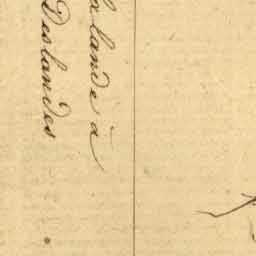 lande à
Deslandes